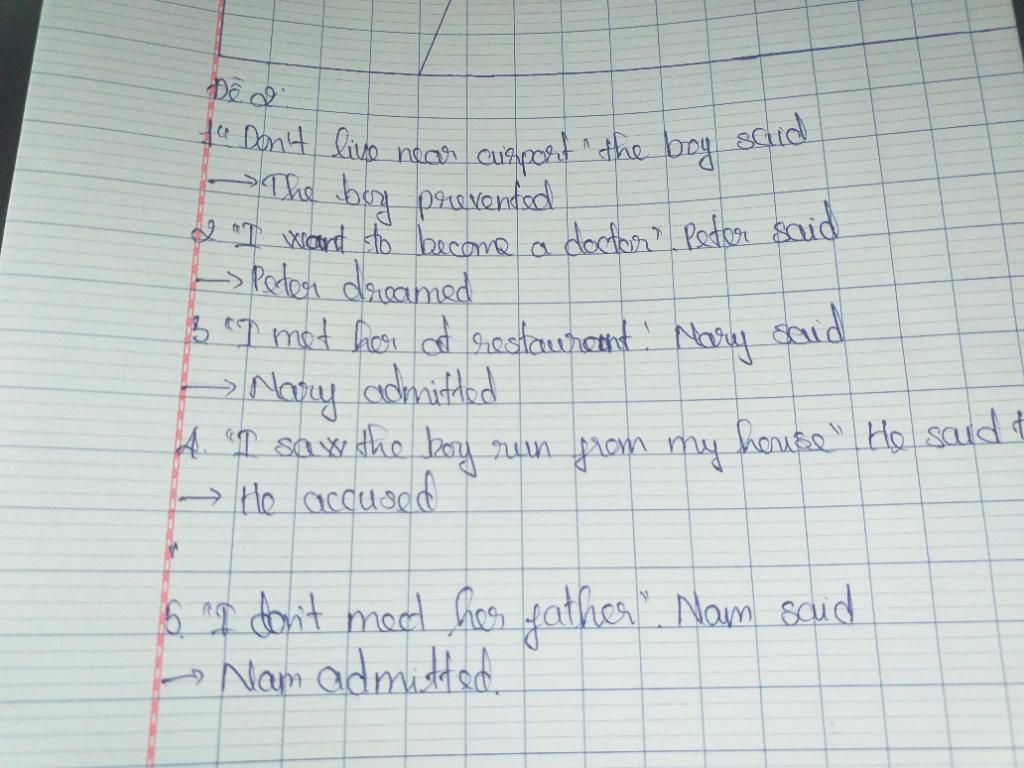 Đề 2:
1 "Don't live near airport" the boy said
→ The boy prevented
2 "I want to become a doctor". Peter said
→ Peter dreamed
3 "I met her at restaurant". Nary said
→ Nary admitted
4. "I saw the boy run from my house" He said t
→ He accused
5. "I don't meet her father". Nam said
→ Nam admitted.